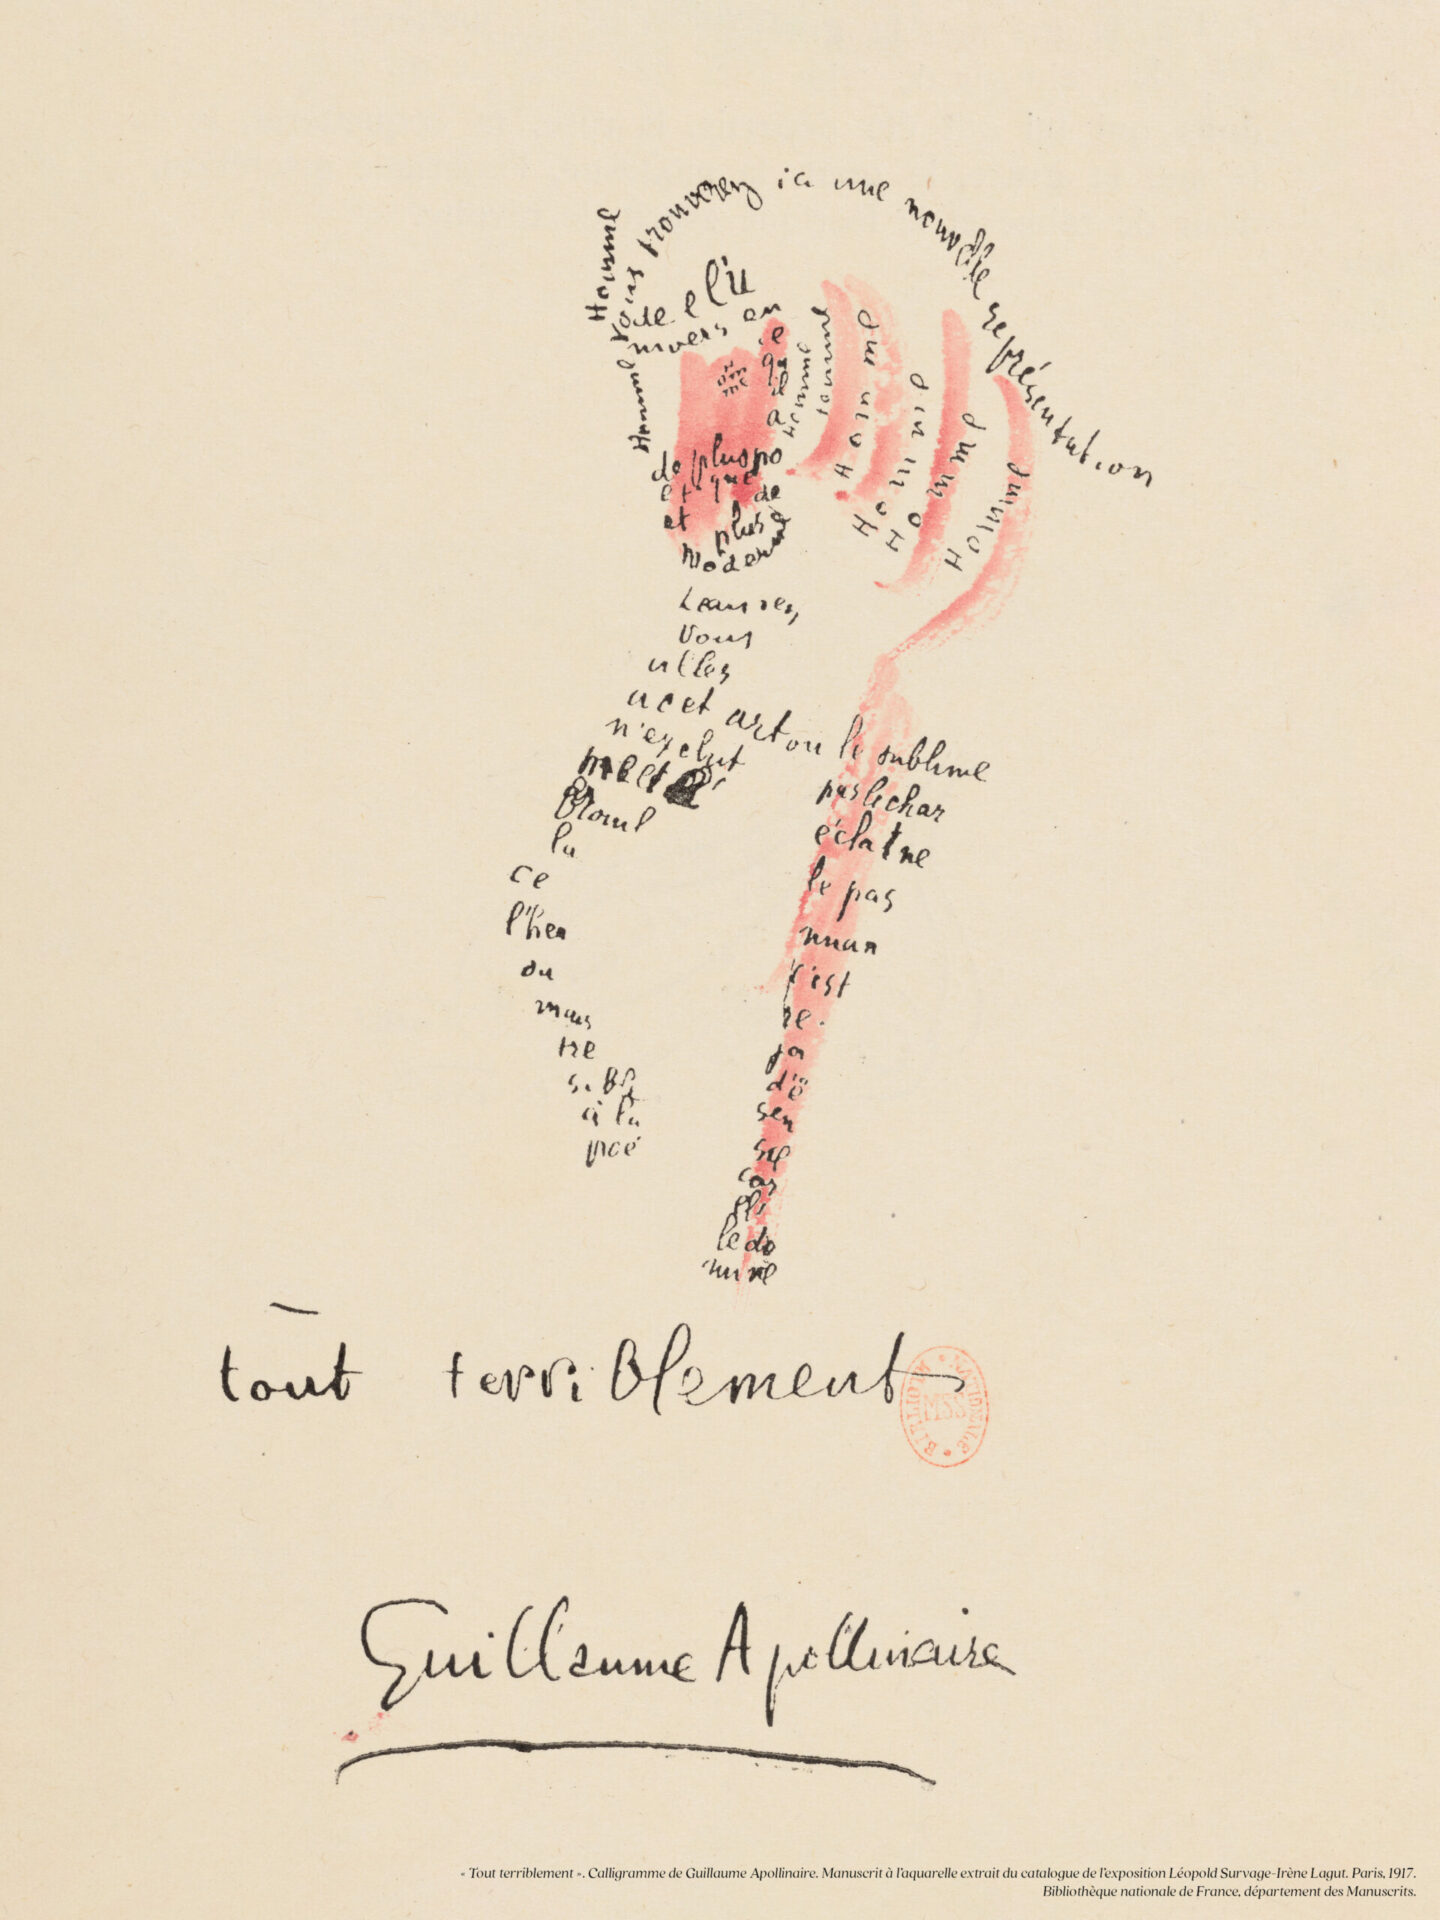 Homme
Vous trouverez ici une nouvelle représentation
de l'u
nivers en
ce
qu'
il
a
Homme
Homme
de plus po
étique
et de
plus
moderne
Homme
Homme
Homme
Homme
Homme
Homme
Laissez
vous
aller
à cet art où le sublime
n'exclut pas le char
me et
éclat ne
brouil
le pas
la nuan
ce c'est
l'heu
re
ou
ja
mais
d'ê
tre
sen
sible
à la
poé
sie
car
elle do
mine
tout terriblement
BIBLIOTH NATIONALE
MSS
Guillaume Apollinaire
« Tout terriblement ». Calligramme de Guillaume Apollinaire. Manuscrit à l'aquarelle extrait du catalogue de l'exposition Léopold Survage-Irène Lagut. Paris, 1917.
Bibliothèque nationale de France, département des Manuscrits.